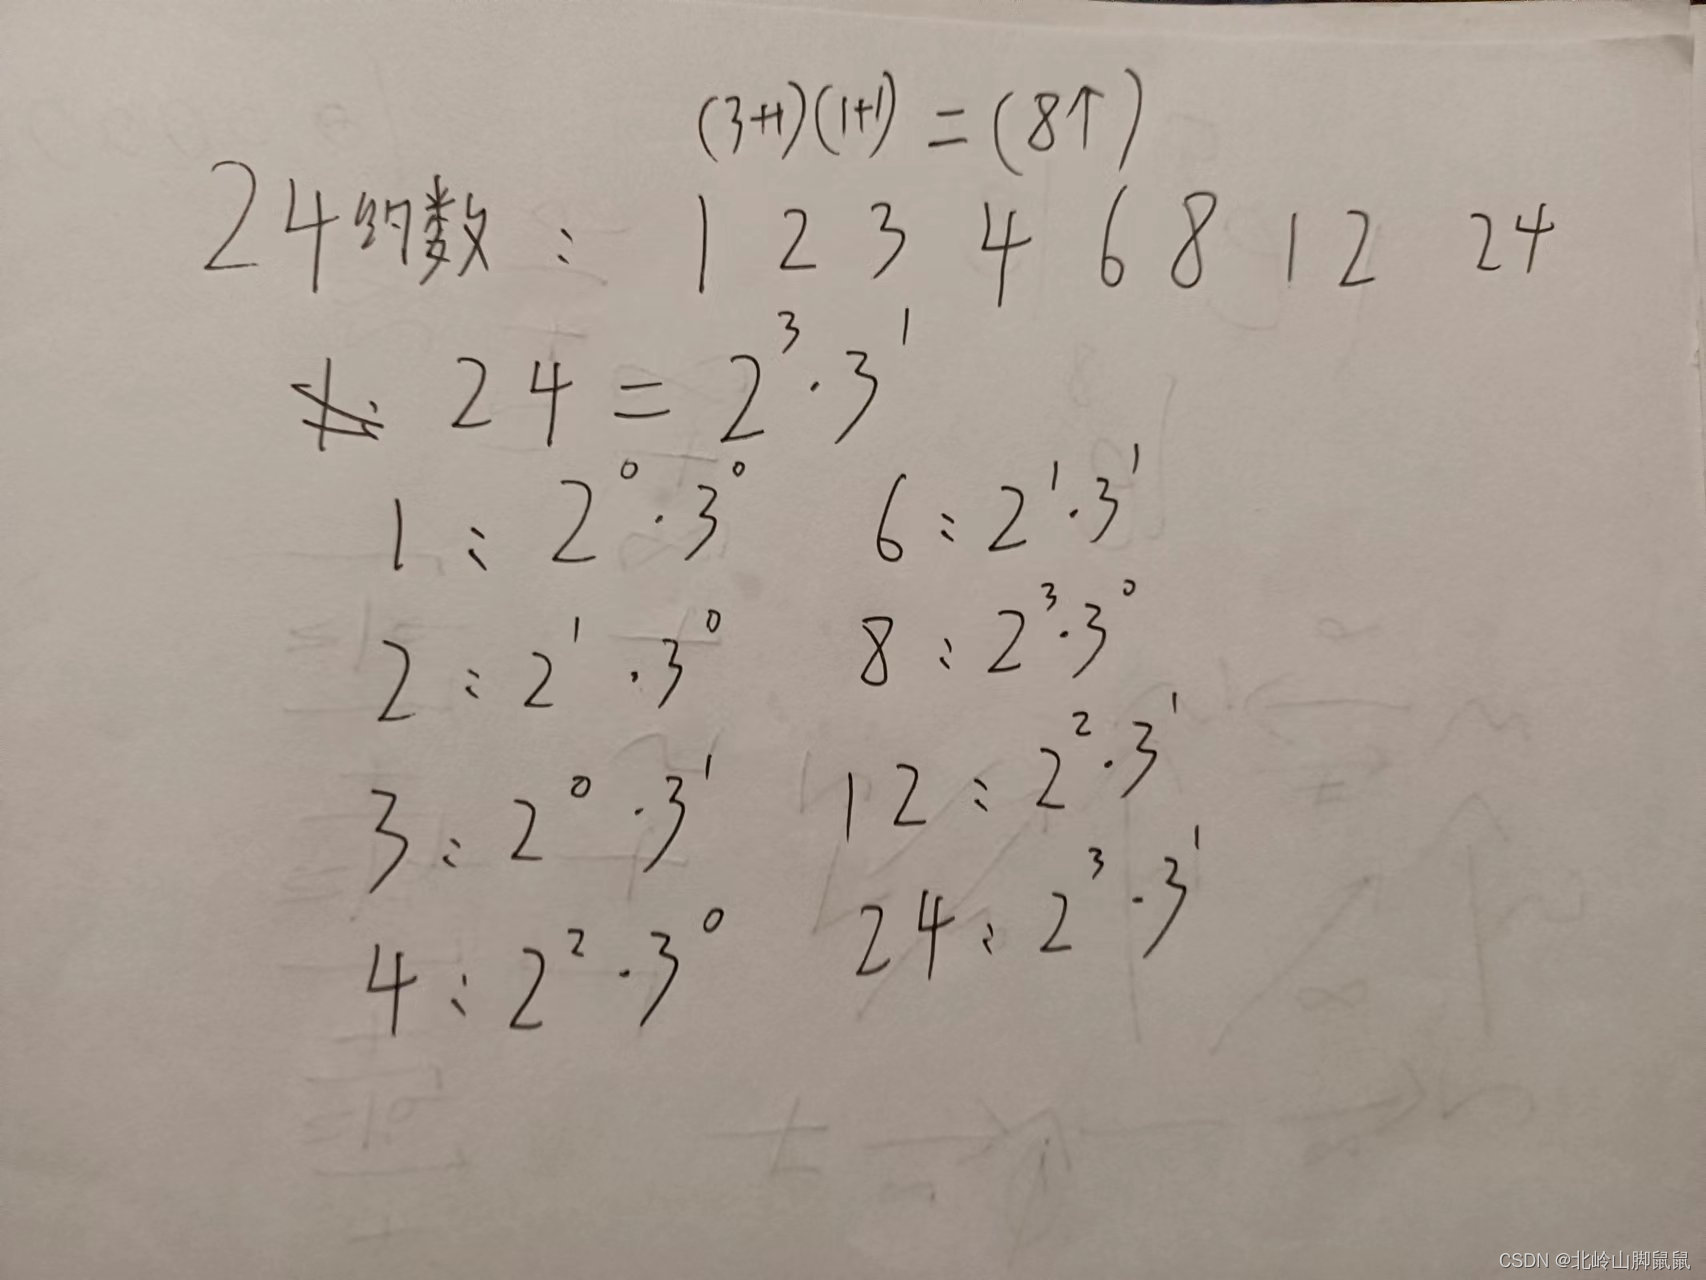 (3+1)(1+1) = (8个)
24约数: 1 2 3 4 6 8 12 24
24 = 2³·3¹
1: 2⁰·3⁰ 6: 2¹·3¹
2: 2¹·3⁰ 8: 2³·3⁰
3: 2⁰·3¹ 12: 2²·3¹
4: 2²·3⁰ 24: 2³·3¹
CSDN @北岭山脚鼠鼠